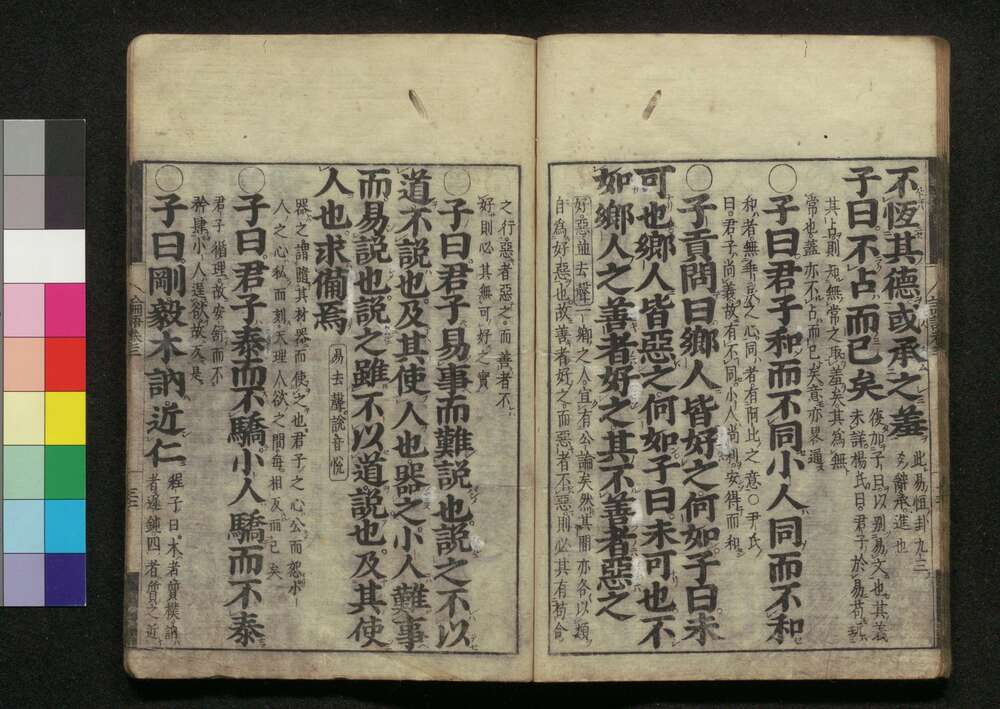 不恆其德或承之羞 此易恒卦九三
之辭承進也
子曰不占而已矣 復加子曰以别易文也其義
未詳楊氏曰君子於易苟玩
其占則知無常之取羞矣其爲無
常也蓋亦不占而已矣意亦畧通
○子曰君子和而不同小人同而不和
和者無乖戾之心同者有阿比之意○尹氏
曰君子尚義故有不同小人尚利安得而和
○子貢問曰鄕人皆好之何如子曰未
可也鄕人皆惡之何如子曰未可也不
如鄕人之善者好之其不善者惡之
好惡並去聲 一鄕之人宜有公論矣然其間亦各以類
自爲好惡也故善者好之而惡者不惡則必其有苟合
之行惡者惡之而善者不
好則必其無可好之實
○子曰君子易事而難說也說之不以
道不說也及其使人也器之小人難事
而易說也說之雖不以道說也及其使
人也求備焉 易去聲說音悅
器之謂隨其材器而使之也君子之心公而恕小
人之心私而刻天理人欲之間每相反而已矣
○子曰君子泰而不驕小人驕而不泰
君子循理故安舒而不
矜肆小人逞欲故反是
○子曰剛毅木訥近仁 程子曰木者質樸訥
者遲鈍四者質之近